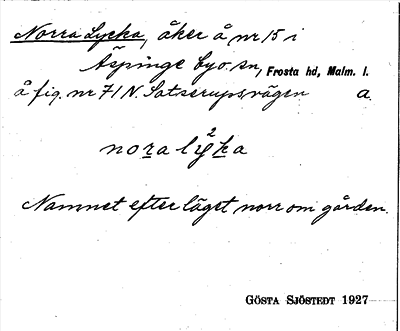 Norra Lycka, åker å nr 15 i
Äspinge by o. sn, Frosta hd, Malm. l.
å fig. nr 71 N. Satserupsvägen a.
nora ly²ka
Namnet efter läget norr om gården.
GÖSTA SJÖSTEDT 1927